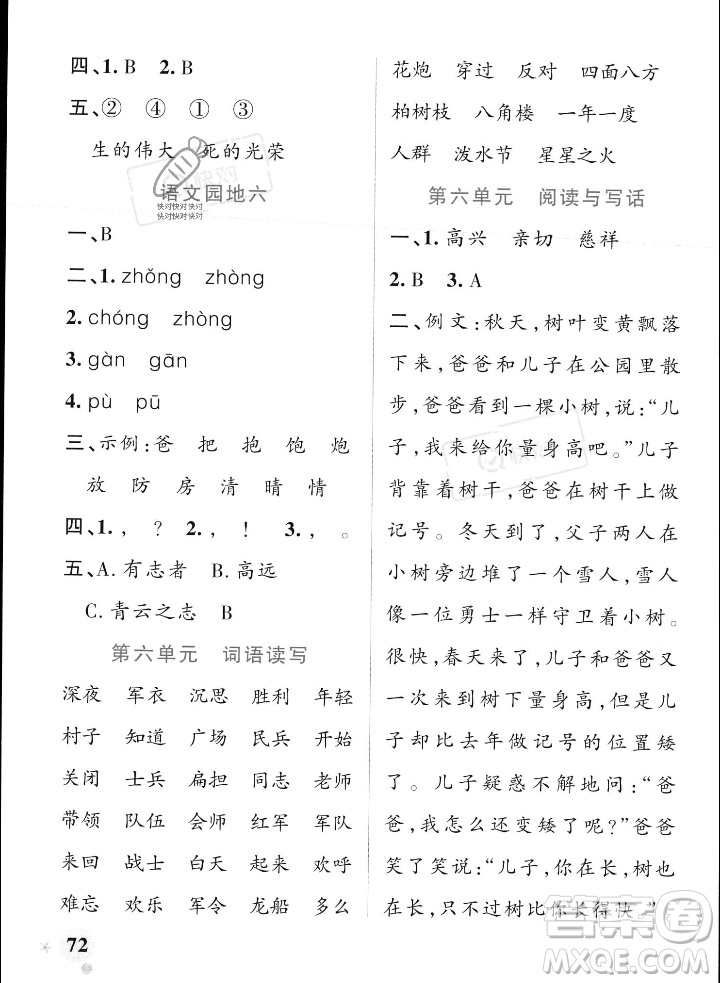 四、1. B　2. B
五、②　④　①　③
生的伟大　死的光荣
语文园地六
一、B
二、1. zhǒng　zhòng
2. chóng　zhòng
3. gàn　gān
4. pù　pū
三、示例:爸　把　抱　饱　炮
放　防　房　清　晴　情
四、1. ，　？　2. ，　！　3. ，　。
五、A. 有志者　B. 高远
C. 青云之志　B
第六单元　词语读写
深夜　军衣　沉思　胜利　年轻
村子　知道　广场　民兵　开始
关闭　士兵　扁担　同志　老师
带领　队伍　会师　红军　军队
来回　战士　白天　起来　欢呼
难忘　欢乐　军令　龙船　多么
72
花炮　穿过　反对　四面八方
柏树枝　八角楼　一年一度
人群　泼水节　星星之火
第六单元　阅读与写话
一、1. 高兴　亲切　慈祥
2. B　3. A
二、例文:秋天,树叶变黄飘落
下来,爸爸和儿子在公园里散
步,爸爸看到一棵小树,说:“儿
子,我来给你量身高吧。”儿子
背靠着树干,爸爸在树干上做
记号。冬天到了,父子两人在
小树旁边堆了一个雪人,雪人
像一位勇士一样守卫着小树。
很快,春天来了,儿子和爸爸又
一次来到树下量身高,可是儿
子却是比去年做记号的位置矮
了。儿子疑惑不解地问:“爸
爸,我怎么还变矮了呢?”爸爸
笑了笑说:“儿子,你在长,树也
在长,只不过树比你长得快。”
快对
快对快对快对
快对快对快对
答案圈
MXQE.COM